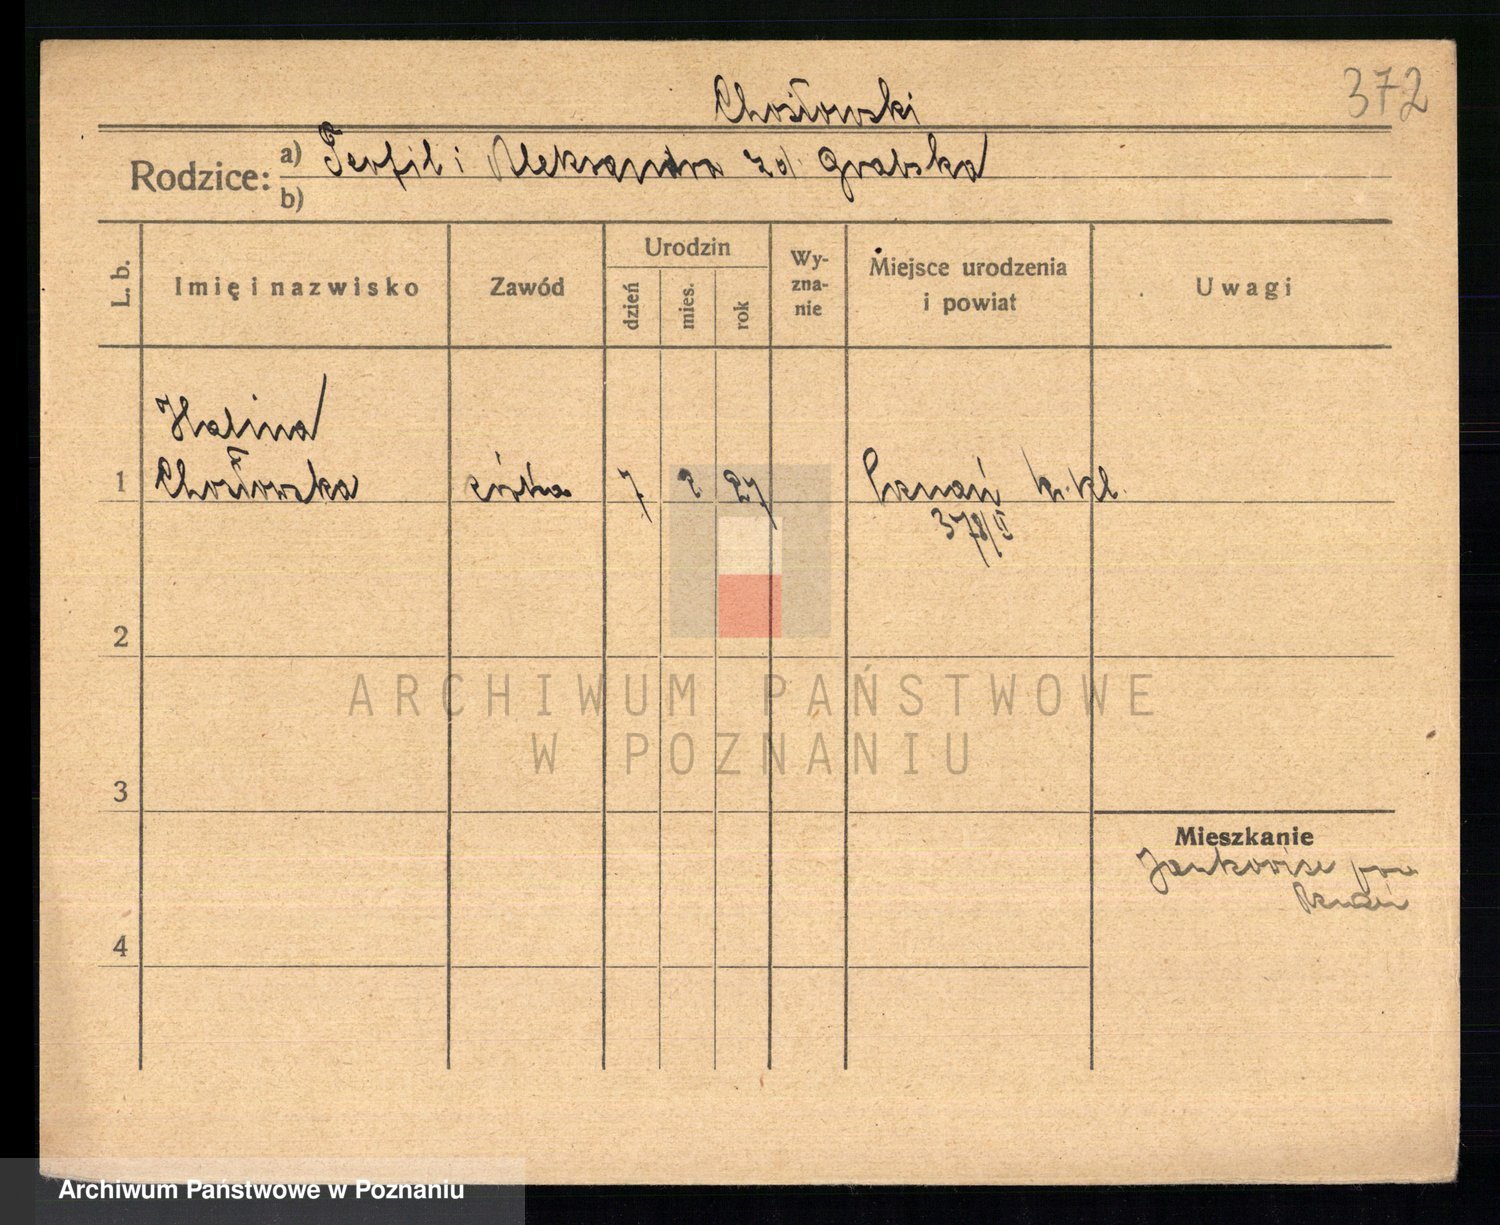 372
Chosłowski
Rodzice: a) Teofil i Aleksandra zd. Grabska
b)
L. b.
Imię i nazwisko
Zawód
Urodzin
dzień
mies.
rok
Wy-
zna-
nie
Miejsce urodzenia
i powiat
Uwagi
Halina
1 Chosłowska córka 7 2 27 Poznań
378/II
2
ARCHIWUM PAŃSTWOWE
W POZNANIU
3
Mieszkanie
Poznań
4
Archiwum Państwowe w Poznaniu